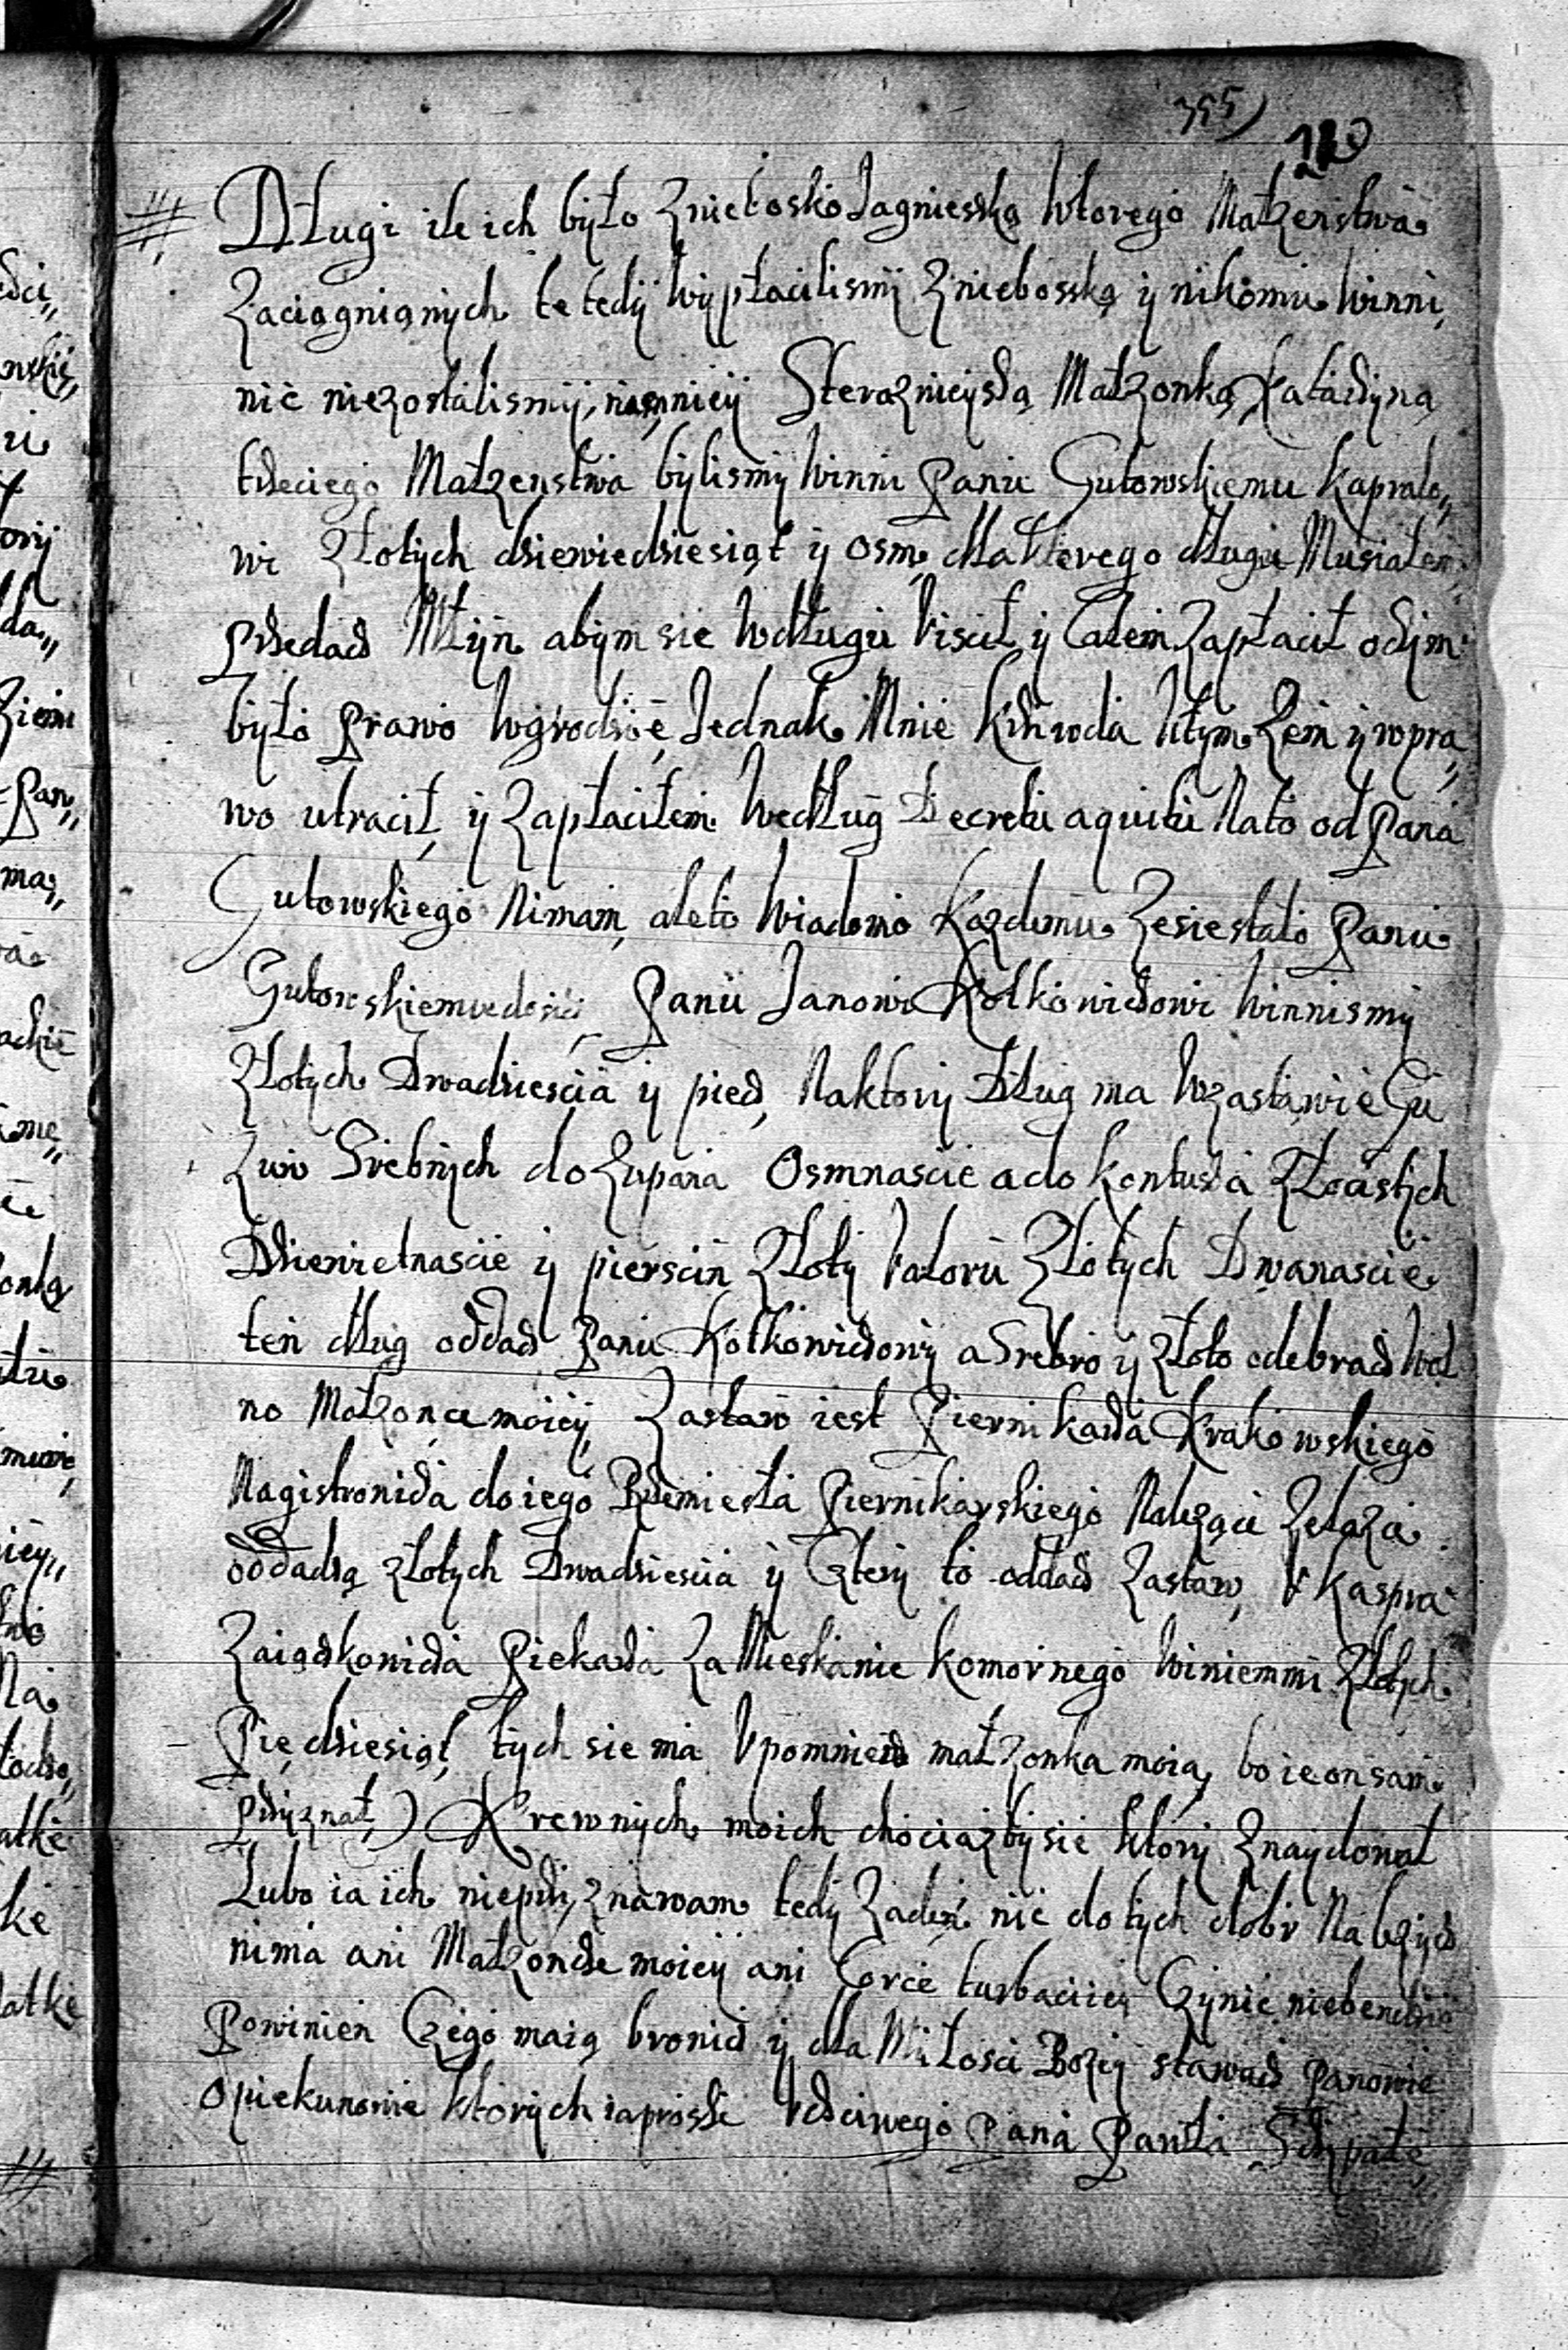 355)
120
Długi ile ich było znieboską Jagnieszką wtorego Małzenstwa
zaciągnianych te tedy wypłacilismy znieboszką y nikomu winni,
nic niezostalismy, Sterazniejszą Małzonką Katarzyną
trzeciego Małzenstwa bylismy winni Panu Gutowskiemu kapralo„
wi złotych dziewiedziesiąt y osm, dla ktorego długu Musiałem
przedacz Młyn abym sie wdługu viscił y całem zapłacił oczym
było prawo wgrodzie, Jednak Mnie krzywda wtym zem y wpra„
wo utracił, y zapłaciłem według Decretu a quitu Nato od Pana
Gutowskiego Nimam, aleto wiadomo kazdemu zesiestało Panu
Gutowskiemu dosić Panu Janowi Kotkowiczowi winnismy
złotych Dwadziescia y piecz, Naktory Dług ma wzastawie Gu
zuw Srebnych do zupana Osmnascie a do kontusza złoastych
Dziewietnascie y pierscin złoty valoru złotych Dwanascie
ten dług oddacz Panu Kotkowiczowy a Srebro y złoto odebracz wol
no Małzonce moiey, zastaw iest Piernikarza Krakowskiego
Nagistronicza do iego Rzemiesła Piernikarskiego Nalezące zelaza
oddadzą złotych Dwadziescia y Cztery to oddacz zastaw, V Kaspra
Zaiączkowicza Piekarza za Mieskanie komornego winiemmi złotych
Piędziesiąt, tych sie ma vpomniecz małzonka moia, bo ie on sam
przyznał,) Krewnych moich chociazby sie ktory znaydował
Lubo ia ich nieprzyznawam tedy zaden nic do tych dobr Nalezycz
nima ani Małzoncze moiey ani Corce turbaciiey Czynic niebendzie
Powinien Czego maią bronicz y dla Miłosci Bozey stawacz Panowie
Opiekunowie ktorych ia prosze Vczciwego Pana Pawła